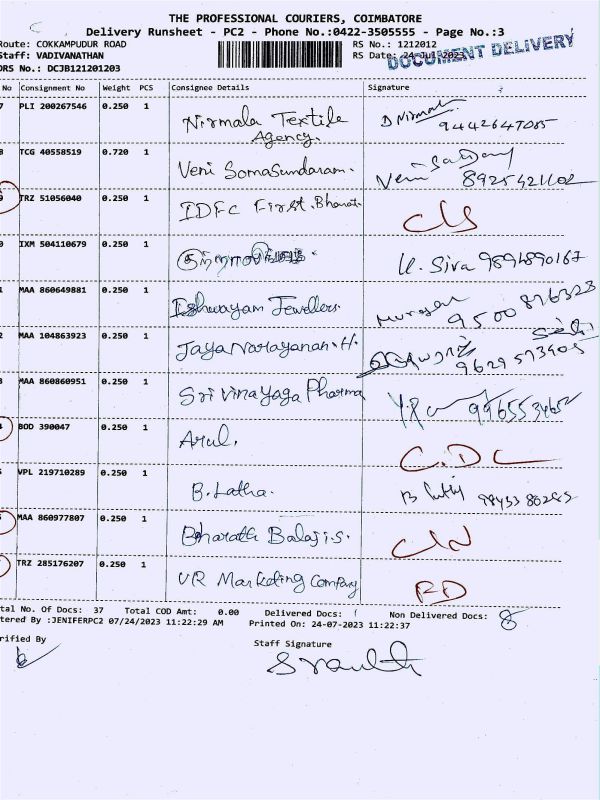 THE PROFESSIONAL COURIERS, COIMBATORE
Delivery Runsheet - PC2 - Phone No.:0422-3505555 - Page No.:3
Route: COKKAMPUDUR ROAD RS No.: 1212012
Staff: VADIVANATHAN RS Date: 24-Jul-2023
DRS No.: DCJB121201203 DOCUMENT DELIVERY
No Consignment No Weight PCS Consignee Details Signature
7 PLI 200267546 0.250 1 Nirmala Textile Agency. D Nirmala
8 TCG 40558519 0.720 1 Veni SomaSundaram. Veni 8925421102
9 TRZ 51056040 0.250 1 IDFC First. Bharat
0 IXM 504110679 0.250 1 K. Siva 9894890167
1 MAA 860649881 0.250 1 Ishwayam Jewellers. Murugan 9500876323
2 MAA 104863923 0.250 1 JayaNarayanan.H.
3 MAA 860860951 0.250 1 Sri Vinayaga Pharma
4 BOD 390047 0.250 1 Arul. C.DL
5 VPL 219710289 0.250 1 B.Latha.
6 MAA 860977807 0.250 1 Bharath Balaji.s.
7 TRZ 285176207 0.250 1 VR Marketing Company RD
tal No. Of Docs: 37 Total COD Amt: 0.00 Delivered Docs: Non Delivered Docs: 8
tered By :JENIFERPC2 07/24/2023 11:22:29 AM Printed On: 24-07-2023 11:22:37
rified By Staff Signature